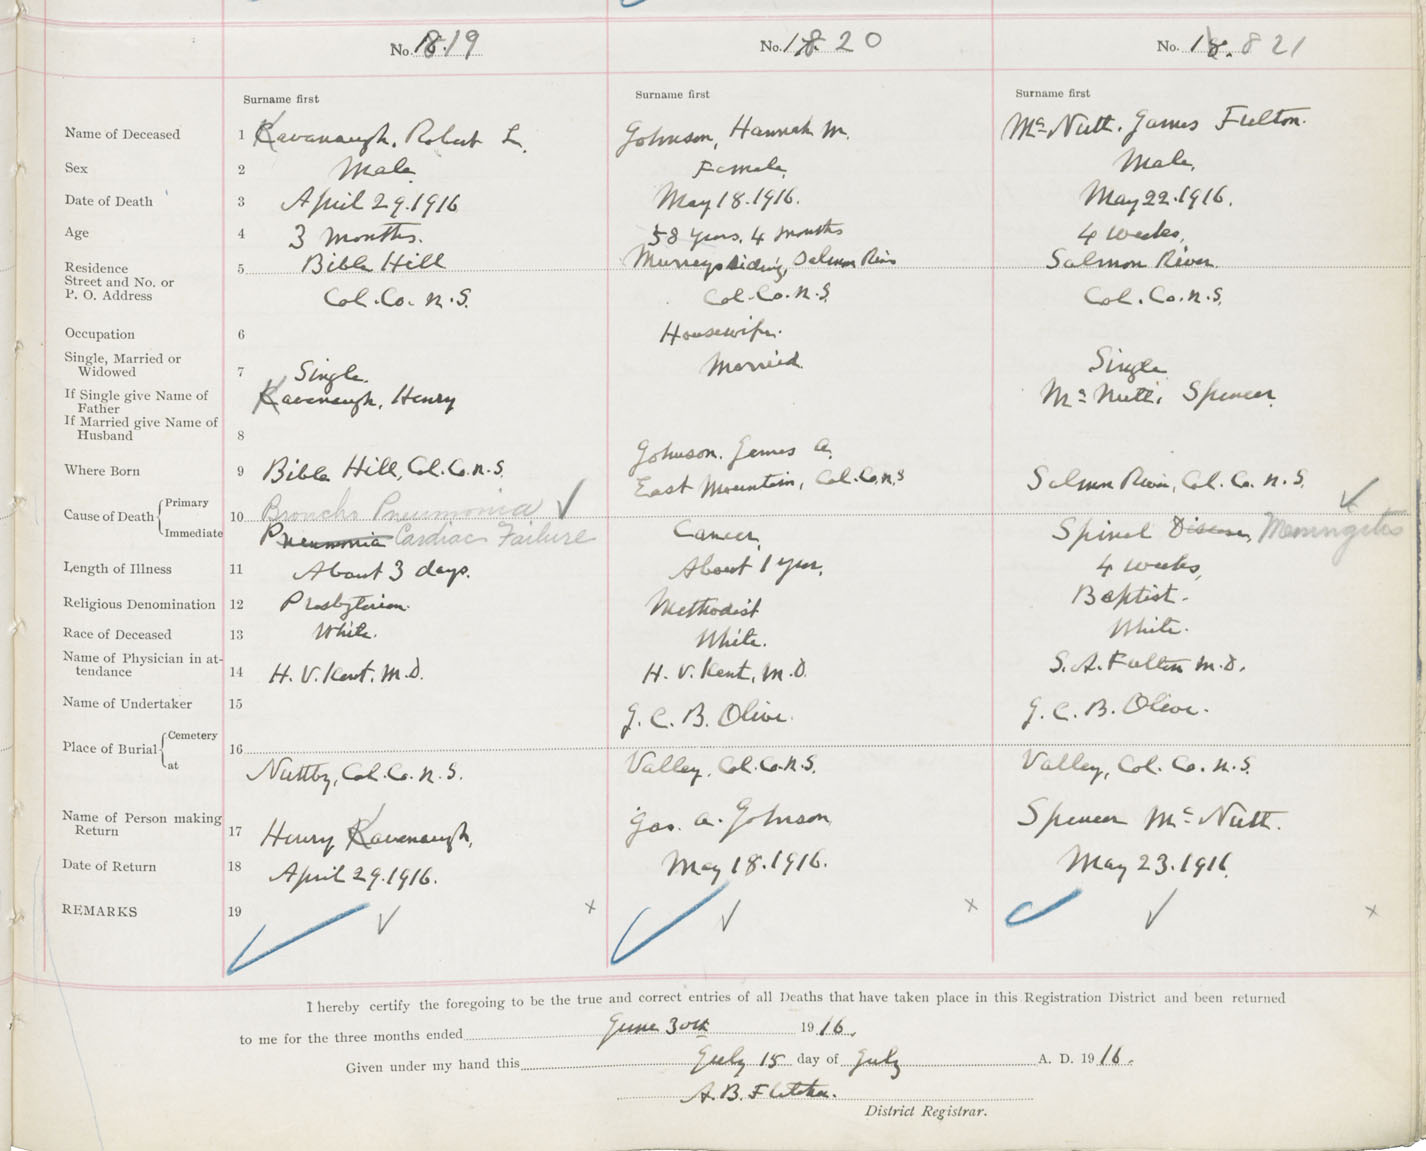 No. 1819 No. 1820 No. 18. 821
Surname first Surname first Surname first
Name of Deceased 1 Kavanaugh, Robert L. Johnson, Hannah M. McNutt, James Fulton.
Sex 2 Male Female Male,
Date of Death 3 April 29.1916 May 18.1916. May 22.1916.
Age 4 3 months. 58 years, 4 months 4 weeks,
Residence 5 Bible Hill Murrays Siding, Salmon River Salmon River
Street and No. or
P. O. Address Col. Co. N. S. Col. Co. N. S. Col. Co. N. S.
Occupation 6 Housewife.
Single, Married or
Widowed 7 Single. Married Single
If Single give Name of
Father Kavenaugh, Henry McNutt, Spencer
If Married give Name of
Husband 8 Johnson, James A.
Where Born 9 Bible Hill, Col. Co. N. S. East Mountain, Col. Co. N. S Salmon River, Col. Co. N. S.
Cause of Death Primary 10 Broncho Pneumonia
Immediate Pneumonia Cardiac Failure Cancer, Spinal Disease, Meningitis
Length of Illness 11 About 3 days. About 1 year. 4 weeks,
Religious Denomination 12 Presbyterian. Methodist Baptist.
Race of Deceased 13 White. White. White.
Name of Physician in at-
tendance 14 H. V. Kent, M. D. H. V. Kent, M. D. S. A. Fulton M. D.
Name of Undertaker 15 J. C. B. Olive. J. C. B. Olive.
Place of Burial Cemetery 16
at Nuttby, Col. Co. N. S. Valley, Col. Co. N. S. Valley, Col. Co. N. S.
Name of Person making
Return 17 Henry Kavenaugh, Jas. A. Johnson Spencer McNutt.
Date of Return 18 April 29.1916. May 18.1916. May 23.1916
REMARKS 19
I hereby certify the foregoing to be the true and correct entries of all Deaths that have taken place in this Registration District and been returned
to me for the three months ended June 30th 1916.
Given under my hand this July 15 day of July A. D. 1916.
A. B. Fletcher.
District Registrar.